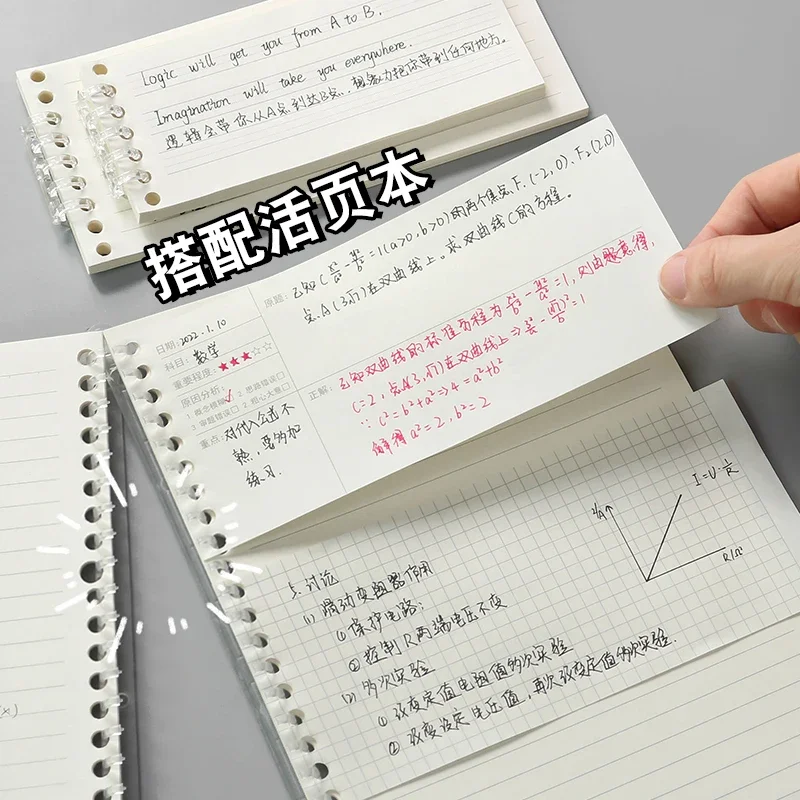 Logic will get you from A to B.
Imagination will take you everywhere.
逻辑会带你从A点到达B点,想象力把你带到任何地方。
搭配活页本
日期:2022.1.10
科目:数学
重要程度:★★★☆☆
原因分析:
1.概念模糊☑ 2.思路错误□
3.审题错误□ 4.粗心大意□
重点:对代入公式不
熟,要多加
练习.
原题:已知C x²/a² - y²/b² =1(a>0,b>0)的两个焦点F₁(-2,0)、F₂(2,0)
点A(3,√7)在双曲线上。求双曲线C的方程。
正解:已知双曲线的标准方程为 x²/a² - y²/b² =1,则由题意得,
c=2,点A(3,√7)在双曲线上⇒ 3²/a² - (√7)²/b² =1
∵ c²=b²+a²⇒4=a²+b²
解得 a²=2,b²=2
5.讨论
(1) 滑动变阻器作用
① 保护电路;
② 控制R两端电压不变
(2) 多次实验
① 改变定值电阻值多次实验
② 改变设定电压值,再次改变定值多次实验.
I/A
I=U·1/R
R/Ω